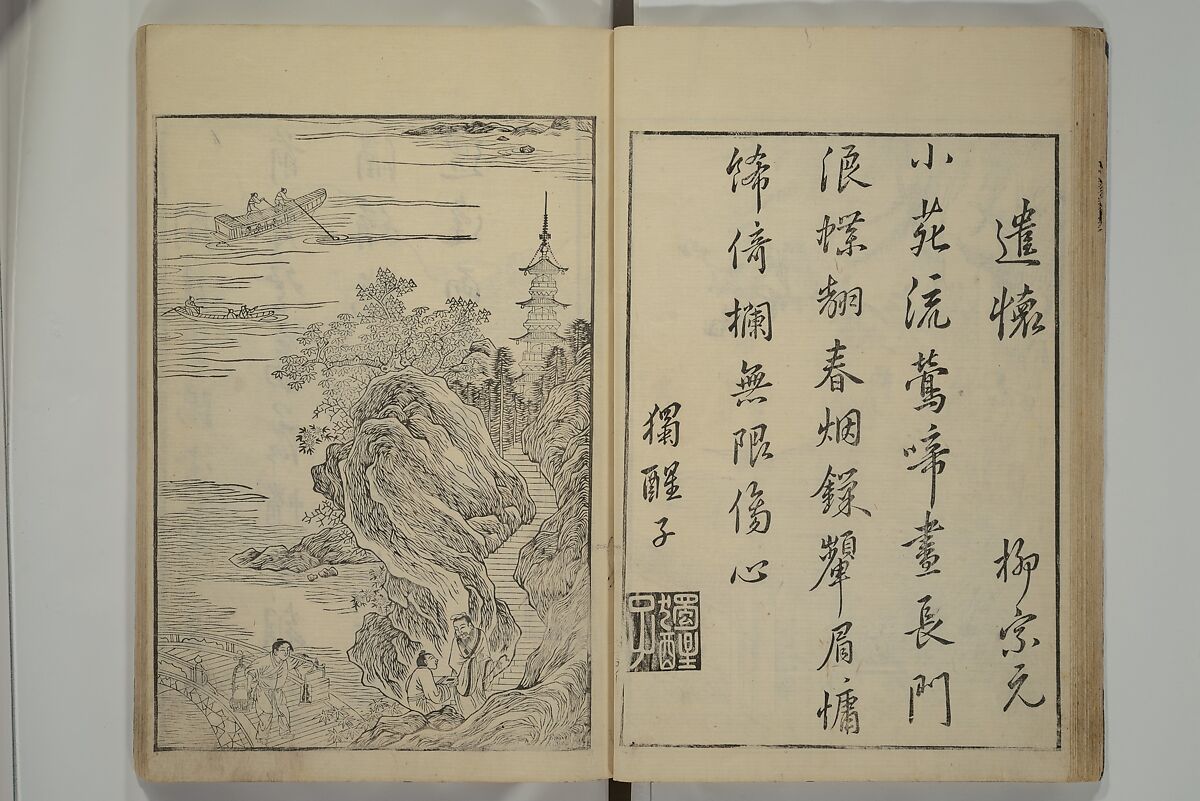 遣懷 柳宗元
小苑流鶯啼晝長門
浪蝶翻春烟鏁顰眉慵
飾倚欄無限傷心
獨醒子